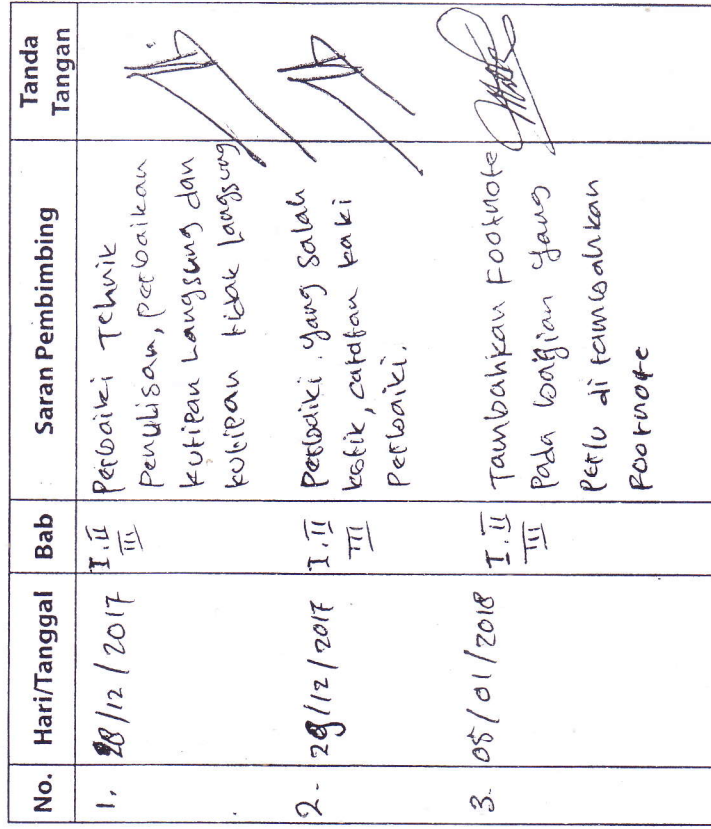 No. Hari/Tanggal Bab Saran Pembimbing Tanda Tangan
1. 28/12/2017 I.II III
Perbaiki Tehnik
Penulisan, perbaikan
kutipan Langsung dan
kutipan tidak Langsung
2. 29/12/2017 I.II III
Perbaiki yang salah
ketik, catatan kaki
Perbaiki.
3. 05/01/2018 I.II III
Tambahkan Footnote
Pada bagian yang
Perlu di tambahkan
Footnote